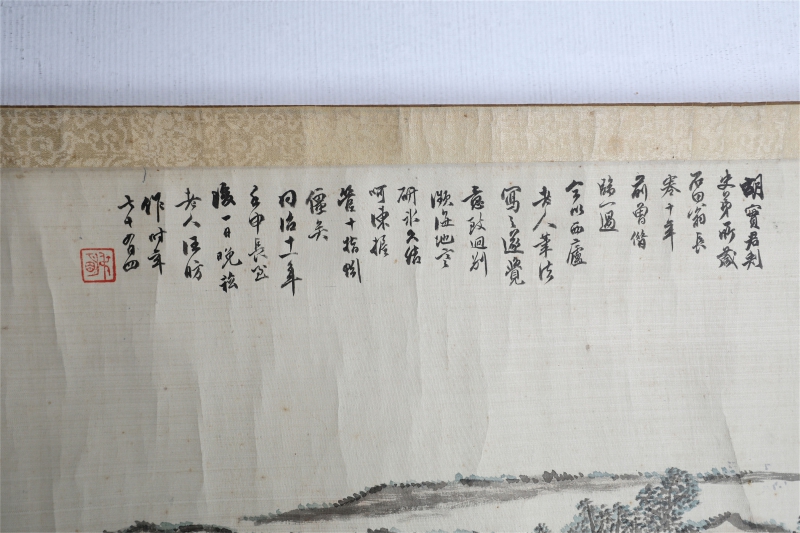 胡寶君刺
史弟所藏
石田翁長
卷十年
前曾借
臨一過
今以西廬
老人筆法
寫之遂覺
意致迥別
瀕海地寒
研冰久結
呵凍握
管十指欲
僵矣
同治十一年
壬申長至
後一日晚
老人汪昉
作時年
七十有四